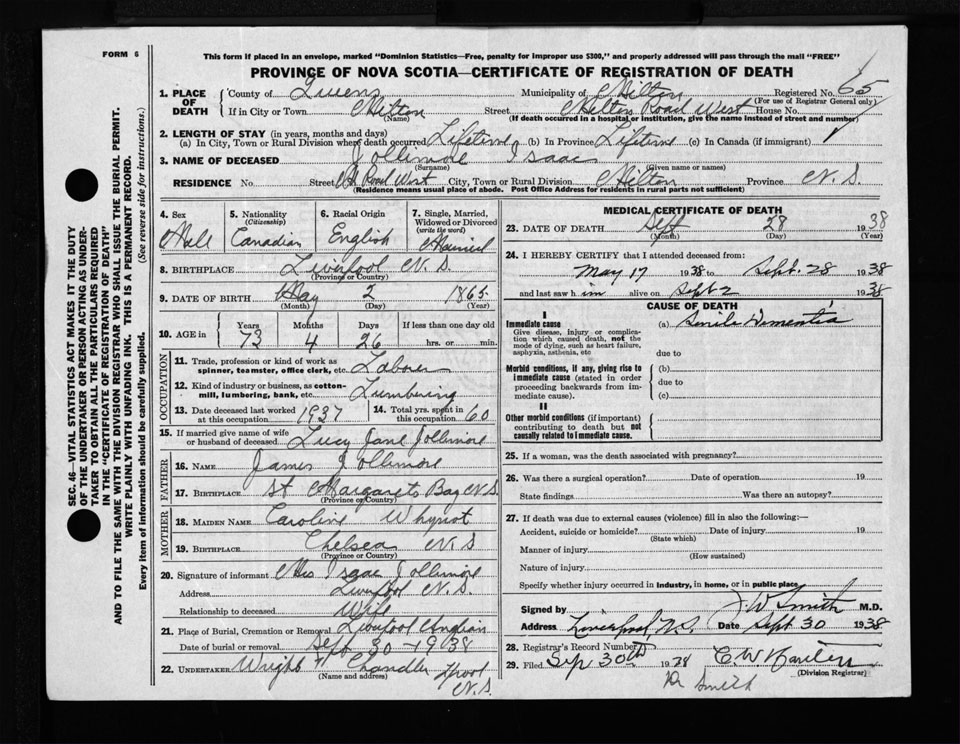 FORM 6
This form if placed in an envelope, marked "Dominion Statistics—Free, penalty for improper use $300," and properly addressed will pass through the mail "FREE"
PROVINCE OF NOVA SCOTIA—CERTIFICATE OF REGISTRATION OF DEATH
1. PLACE OF DEATH { County of Queens Municipality of Milton Registered No. 65
(For use of Registrar General only)
If in City or Town Milton Street Milton Road West House No.
(Name) (If death occurred in a hospital or institution, give the name instead of street and number)
2. LENGTH OF STAY (in years, months and days)
(a) In City, Town or Rural Division where death occurred Lifetime (b) In Province Lifetime (c) In Canada (if immigrant)
3. NAME OF DECEASED Jollimore Isaac
(Surname) (Given name or names)
RESIDENCE No. Street M Road West City, Town or Rural Division Milton Province N. S.
(Residence means usual place of abode. Post Office Address for residents in rural parts not sufficient)
4. Sex Male
5. Nationality (Citizenship) Canadian
6. Racial Origin English
7. Single, Married, Widowed or Divorced (write the word) Married
8. BIRTHPLACE Liverpool N. S.
(Province or Country)
9. DATE OF BIRTH May 2 1865
(Month) (Day) (Year)
10. AGE in Years 73 Months 4 Days 26 If less than one day old hrs. or min.
OCCUPATION
11. Trade, profession or kind of work as spinner, teamster, office clerk, etc. Laborer
12. Kind of industry or business, as cotton-mill, lumbering, bank, etc. Lumbering
13. Date deceased last worked at this occupation 1937
14. Total yrs. spent in this occupation 60
15. If married give name of wife or husband of deceased Lucy Jane Jollimore
FATHER
16. NAME James Jollimore
17. BIRTHPLACE St Margarets Bay N.S.
(Province or Country)
MOTHER
18. MAIDEN NAME Caroline Whynot
19. BIRTHPLACE Chelsea N. S
(Province or Country)
20. Signature of informant Mrs Isaac Jollimore
Address Liverpool N. S.
Relationship to deceased Wife
21. Place of Burial, Cremation or Removal Liverpool
Date of burial or removal Sept 30-1938
22. UNDERTAKER Wright Chandler Lpool N.S.
(Name and address)
MEDICAL CERTIFICATE OF DEATH
23. DATE OF DEATH Sept 28 1938
(Month) (Day) (Year)
24. I HEREBY CERTIFY that I attended deceased from:
May 17 1938 to Sept. 28 1938
and last saw h im alive on Sept 2 1938
CAUSE OF DEATH
I
Immediate cause
Give disease, injury or complication which caused death, not the mode of dying, such as heart failure, asphyxia, asthenia, etc
(a) Senile Dementia
due to
Morbid conditions, if any, giving rise to immediate cause (stated in order proceeding backwards from immediate cause).
(b)
due to
(c)
II
Other morbid conditions (if important) contributing to death but not causally related to immediate cause.
25. If a woman, was the death associated with pregnancy?
26. Was there a surgical operation? Date of operation 19
State findings Was there an autopsy?
27. If death was due to external causes (violence) fill in also the following:—
Accident, suicide or homicide? Date of injury 19
(State which)
Manner of injury
(How sustained)
Nature of injury
Specify whether injury occurred in industry, in home, or in public place
Signed by J W Smith M.D.
Address Liverpool, N.S. Date Sept 30 1938
28. Registrar's Record Number
29. Filed Sep 30th 1938 C. W.
(Division Registrar)
Dr Smith
SEC. 46—VITAL STATISTICS ACT MAKES IT THE DUTY
OF THE UNDERTAKER OR PERSON ACTING AS UNDER-
TAKER TO OBTAIN ALL THE PARTICULARS REQUIRED
IN THE "CERTIFICATE OF REGISTRATION OF DEATH"
AND TO FILE THE SAME WITH THE DIVISION REGISTRAR WHO SHALL ISSUE THE BURIAL PERMIT.
WRITE PLAINLY WITH UNFADING INK. THIS IS A PERMANENT RECORD.
Every item of information should be carefully supplied. (See reverse side for instructions.)